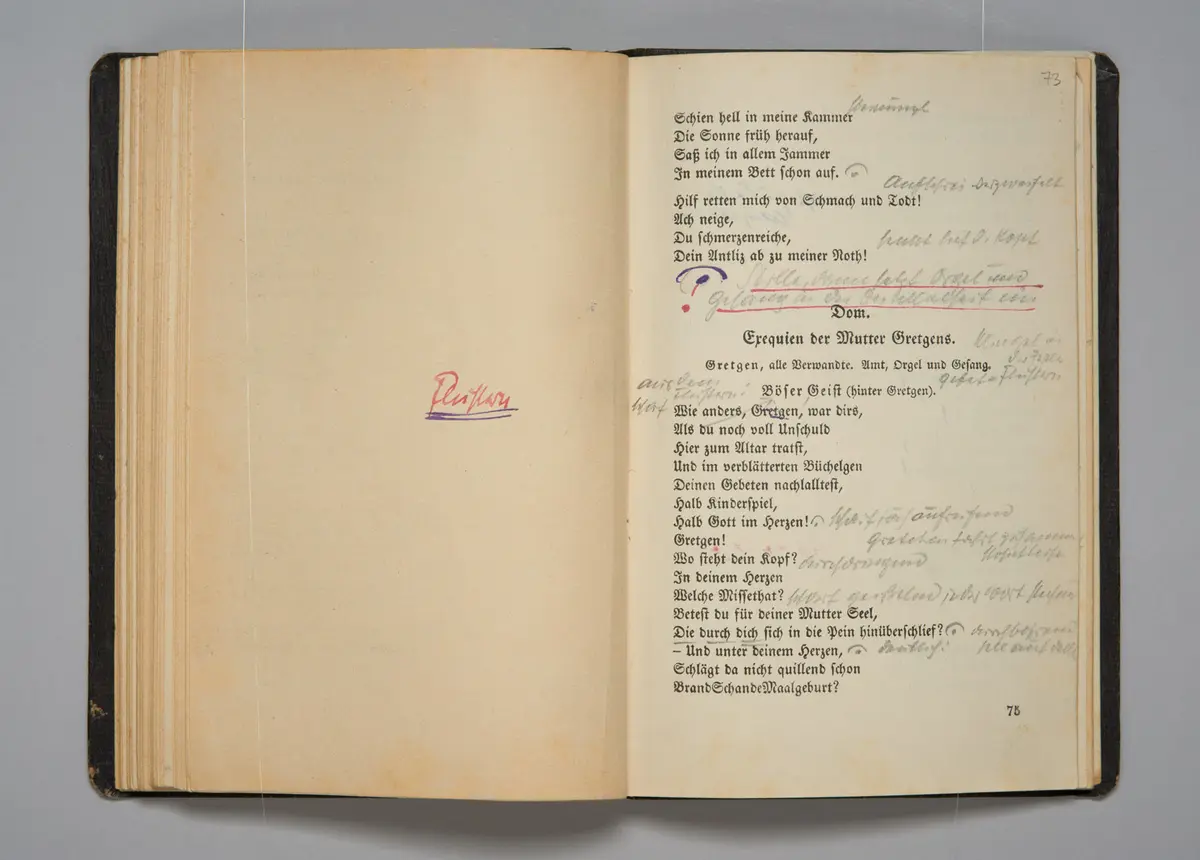 Flüstern
73
Schien hell in meine Kammer
Die Sonne früh herauf,
Saß ich in allem Jammer
In meinem Bett schon auf.
Aufschrei verzweifelt
Hilf retten mich von Schmach und Todt!
Ach neige,
Du schmerzenreiche,
Dein Antliz ab zu meiner Noth!
Stille, dann setzt Orgel und
Gesang in der Dunkelheit ein
Dom.
Exequien der Mutter Gretgens.
Gretgen, alle Verwandte. Amt, Orgel und Gesang.
aus dem
Flüstern:
Böser Geist (hinter Gretgen).
Wie anders, Gretgen, war dirs,
Als du noch voll Unschuld
Hier zum Altar tratst,
Und im verblätterten Büchelgen
Deinen Gebeten nachlalltest,
Halb Kinderspiel,
Halb Gott im Herzen!
Gretgen!
Wo steht dein Kopf? durchdringend
In deinem Herzen
Welche Missethat?
Betest du für deiner Mutter Seel,
Die durch dich sich in die Pein hinüberschlief?
– Und unter deinem Herzen, deutlich:
Schlägt da nicht quillend schon
BrandSchandeMaalgeburt?
75